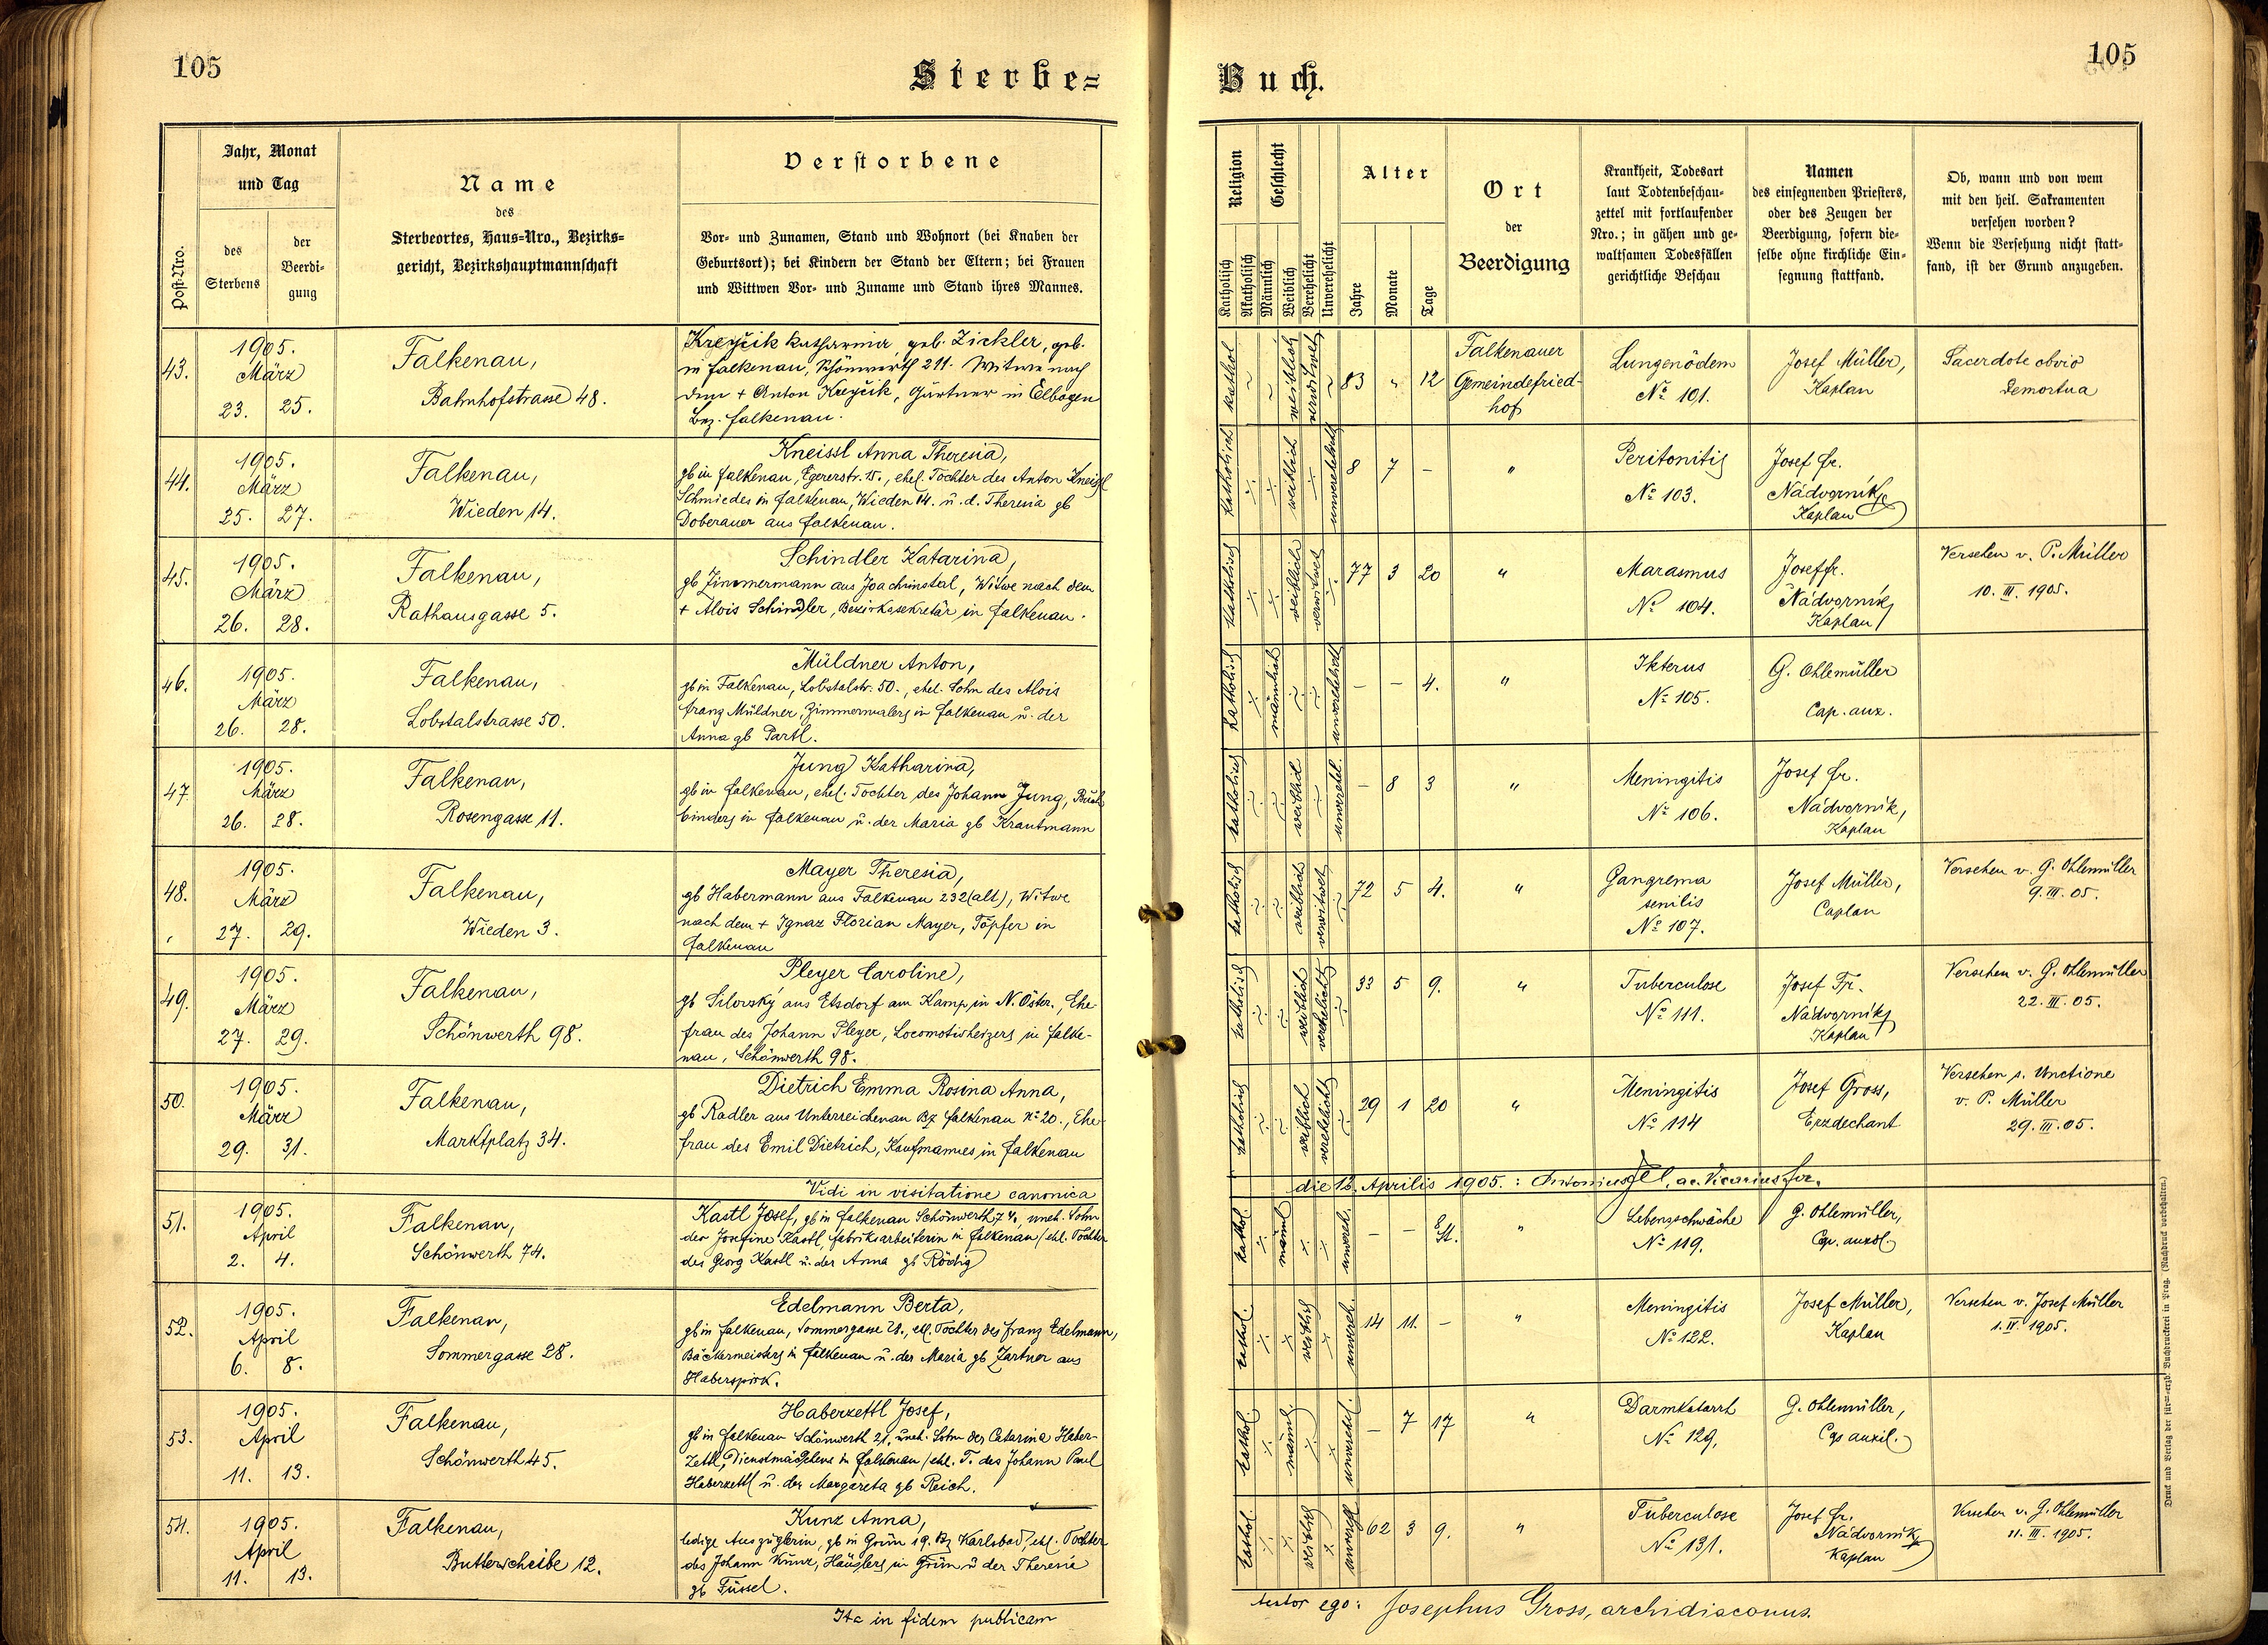 105
Sterbe=
Buch.
105
Post-Nro.
Jahr, Monat
und Tag
des
Sterbens
der
Beerdi-
gung
Name
des
Sterbeortes, Haus=Nro., Bezirks=
gericht, Bezirkshauptmannschaft
Verstorbene
Vor- und Zunamen, Stand und Wohnort (bei Knaben der
Geburtsort); bei Kindern der Stand der Eltern; bei Frauen
und Wittwen Vor- und Zuname und Stand ihres Mannes.
Religion
Geschlecht
Katholisch
Akatholisch
Männlich
Weiblich
Verehelicht
Unverehelicht
Alter
Jahre
Monate
Tage
Ort
der
Beerdigung
Krankheit, Todesart
laut Todtenbeschau-
zettel mit fortlaufender
Nro.; in gähen und ge-
waltsamen Todesfällen
gerichtliche Beschau
Namen
des einsegnenden Priesters,
oder des Zeugen der
Beerdigung, sofern die-
selbe ohne kirchliche Ein-
segnung stattfand.
Ob, wann und von wem
mit den heil. Sakramenten
versehen worden?
Wenn die Versehung nicht statt-
fand, ist der Grund anzugeben.
43.
1905.
März
23. 25.
Falkenau,
Bahnhofstrasse 48.
Krejčik Katharina, geb. Zickler, geb.
in Falkenau, Schönwerth 211. Witwe nach
dem + Anton Krejčik, Gärtner in Elbogen
Bez. Falkenau.
kathol weiblich verwitwet 83 " 12
Falkenauer
Gemeindefried-
hof
Lungenödem
No 101.
Josef Müller,
Kaplan
Sacerdote obvio
demortua
44.
1905.
März
25. 27.
Falkenau,
Wieden 14.
Kneissl Anna Theresia,
gb in Falkenau, Egererstr. 15., ehel. Tochter des Anton Kneissl
Schmiedes in Falkenau, Wieden 14. u. d. Theresia gb
Doberauer aus Falkenau.
katholisch weiblich unverehelicht 8 7 – "
Peritonitis
No 103.
Josef Fr.
Nádvorník
Kaplan
45.
1905.
März
26. 28.
Falkenau,
Rathausgasse 5.
Schindler Katarina,
gb Zimmermann aus Joachimstal, Witwe nach dem
+ Alois Schindler, Bezirkssekretär in Falkenau.
katholisch weiblich verwitwet 77 3 20 "
Marasmus
No 104.
Josef Fr.
Nádvorník
Kaplan
Versehen v. P. Müller
10. III. 1905.
46.
1905.
März
26. 28.
Falkenau,
Lobstalstrasse 50.
Müldner Anton,
gb in Falkenau, Lobstalstr. 50., ehel. Sohn des Alois
Franz Müldner, Zimmermalers in Falkenau u. der
Anna gb Partl.
katholisch männlich unverehelicht – – 4. "
Ikterus
No 105.
G. Ohlemüller
Cap. aux.
47.
1905.
März
26. 28.
Falkenau,
Rosengasse 11.
Jung Katharina,
gb in Falkenau, ehel. Tochter des Johann Jung, Buch
binders in Falkenau u. der Maria gb Krautmann
katholisch weiblich unverehel. – 8 3 "
Meningitis
No 106.
Josef Fr.
Nádvorník,
Kaplan
48.
1905.
März
27. 29.
Falkenau,
Wieden 3.
Mayer Theresia,
gb Habermann aus Falkenau 232 (alt), Witwe
nach dem + Ignaz Florian Mayer, Töpfer in
Falkenau
katholisch weiblich verwitwet 72 5 4. "
Gangrema
senilis
No 107.
Josef Müller,
Caplan
Versehen v. G. Ohlemüller
9. III. 05.
49.
1905.
März
27. 29.
Falkenau,
Schönwerth 98.
Pleyer Caroline,
gb Silovský aus Etsdorf am Kamp, in N. Öster., Ehe
frau des Johann Pleyer, Locomotivheizers in Falke-
nau, Schönwerth 98.
katholisch weiblich verehelicht 33 5 9. "
Tuberculose
No 111.
Josef Fr.
Nádvorník
Kaplan
Versehen v. G. Ohlemüller
22. III. 05.
50.
1905.
März
29. 31.
Falkenau,
Marktplatz 34.
Dietrich Emma Rosina Anna,
gb Radler aus Unterreichenau Bz Falkenau No 20., Ehe
frau des Emil Dietrich, Kaufmannes in Falkenau
katholisch weiblich verehelicht 29 1 20 "
Meningitis
No 114
Josef Gross,
Erzdechant
Versehen s. Unctione
v. P. Müller
29. III. 05.
Vidi in visitatione canonica
die 12. Aprilis 1905.: Antonius
51.
1905.
April
2. 4.
Falkenau,
Schönwerth 74.
Kastl Josef, gb in Falkenau Schönwerth 74, uneh. Sohn
der Josefine Kastl, Fabriksarbeiterin in Falkenau / ehl. Tochter
des Georg Kastl u. der Anna gb Rödig
kathol. männl unvereh. – – St. "
Lebensschwäche
No 119.
G. Ohlemüller,
52.
1905.
April
6. 8.
Falkenau,
Sommergasse 28.
Edelmann Berta,
gb in Falkenau, Sommergasse 28., ell. Tochter des Franz Edelmann,
Bäckermeisters in Falkenau u. der Maria gb Zartner aus
Haberspirk.
kathol. weiblich unvereh. 14 11. – "
Meningitis
No 122.
Josef Müller,
Kaplan
Versehen v. Josef Müller
1. IV. 1905.
53.
1905.
April
11. 13.
Falkenau,
Schönwerth 45.
Haberzettl Josef,
gb in Falkenau Schönwerth 21, uneh. Sohn der Catarina Haber-
zettl, Dienstmädchens in Falkenau / ehl. T. des Johann Paul
Haberzettl u. der Margareta gb Reich.
kathol. männl unverehel. – 7 17 "
Darmkatarrh
No 129.
G. Ohlemüller,
Cap auxil.
54.
1905.
April
11. 13.
Falkenau,
Butterscheibe 12.
Kunz Anna,
ledige Auszüglerin, gb in Grün 19. Bz Karlsbad, ehl. Tochter
des Johann Kunz, Häuslers in Grün u der Theresia
gb Füssel.
kathol. weiblich unverehl 62 3 9. "
Tuberculose
No 131.
Josef Fr.
Nádvorník
Kaplan
Versehen v. G. Ohlemüller
11. III. 1905.
Ita in fidem publicam
testor ego: Josephus Gross, archidiaconus.
Druck und Verlag der fürst-erzb. Buchdruckerei in Prag. (Nachdruck vorbehalten.)